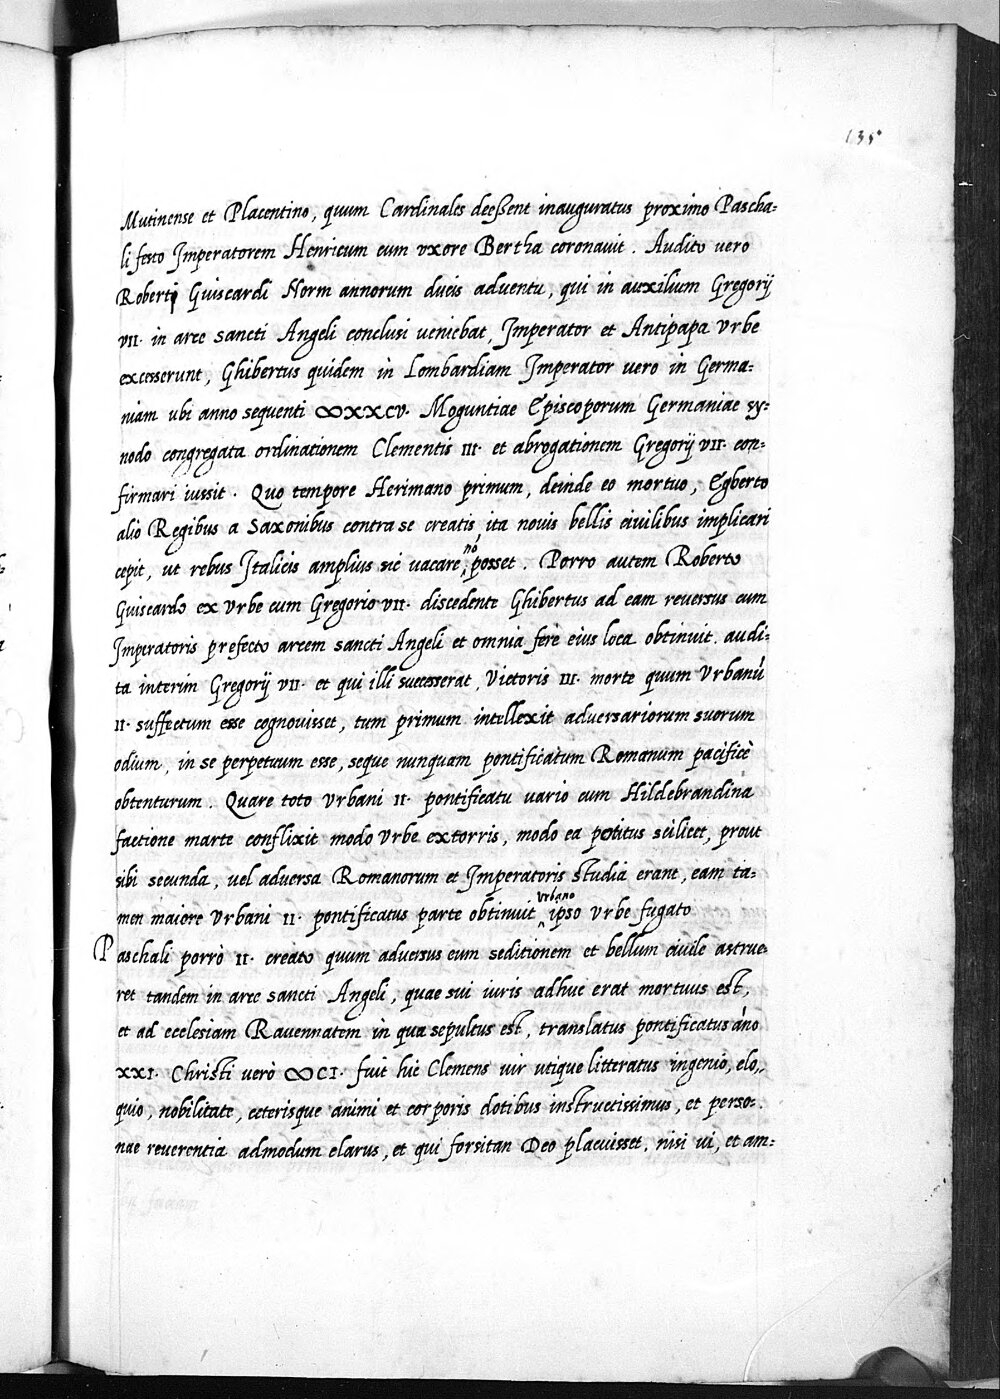 135
Mutinense et Placentino, quum Cardinales deeßent inauguratus proximo Pascha=
li festo Imperatorem Henricum cum vxore Bertha coronauit. Audito vero
Roberti Guiscardi Norm annorum ducis aduentu, qui in auxilium Gregorij
VII. in arce sancti Angeli conclusi ueniebat, Imperator et Antipapa Vrbe
excesserunt, Ghibertus quidem in Lombardiam Imperator uero in Germa=
niam ubi anno sequenti ∞XXCV. Moguntiae Episcoporum Germaniae sy=
nodo congregata ordinationem Clementis III. et abrogationem Gregorij VII. con=
firmari iussit. Quo tempore Herimano primum, deinde eo mortuo, Egberto
alio Regibus a Saxonibus contra se creatis ita nouis bellis ciuilibus implicari
cepit, ut rebus Italicis amplius sic uacare nō posset. Porro autem Roberto
Guiscardo ex Vrbe cum Gregorio VII. discedente Ghibertus ad eam reuersus cum
Imperatoris prefecto arcem sancti Angeli et omnia fere eius loca obtinuit. audi=
ta interim Gregorij VII. et qui illi successerat, Victoris III. morte quum Vrbanū
II. suffectum esse cognouisset, tum primum intellexit aduersariorum suorum
odium, in se perpetuum esse, seque nunquam pontificatum Romanum pacificè
obtenturum. Quare toto Vrbani II. pontificatu uario cum Hildebrandina
factione marte conflixit modo Vrbe extorris, modo ea potitus scilicet, prout
sibi secunda, uel aduersa Romanorum et Imperatoris studia erant, eam ta=
men maiore Vrbani II. pontificatus parte obtinuit Vrbano ipso Vrbe fugato
Paschali porrò II. creato quum aduersus eum seditionem et bellum ciuile astrue=
ret tandem in arce sancti Angeli, quae sui iuris adhuc erat mortuus est,
et ad ecclesiam Rauennatem in qua sepultus est, translatus pontificatus āno
XXI. Christi verò ∞CI. fuit hic Clemens uir utique litteratus ingenio, elo=
quio, nobilitate, ceterisque animi et corporis dotibus instructissimus, et perso=
nae reuerentia admodum clarus, et qui forsitan Deo placuisset, nisi ui, et am=